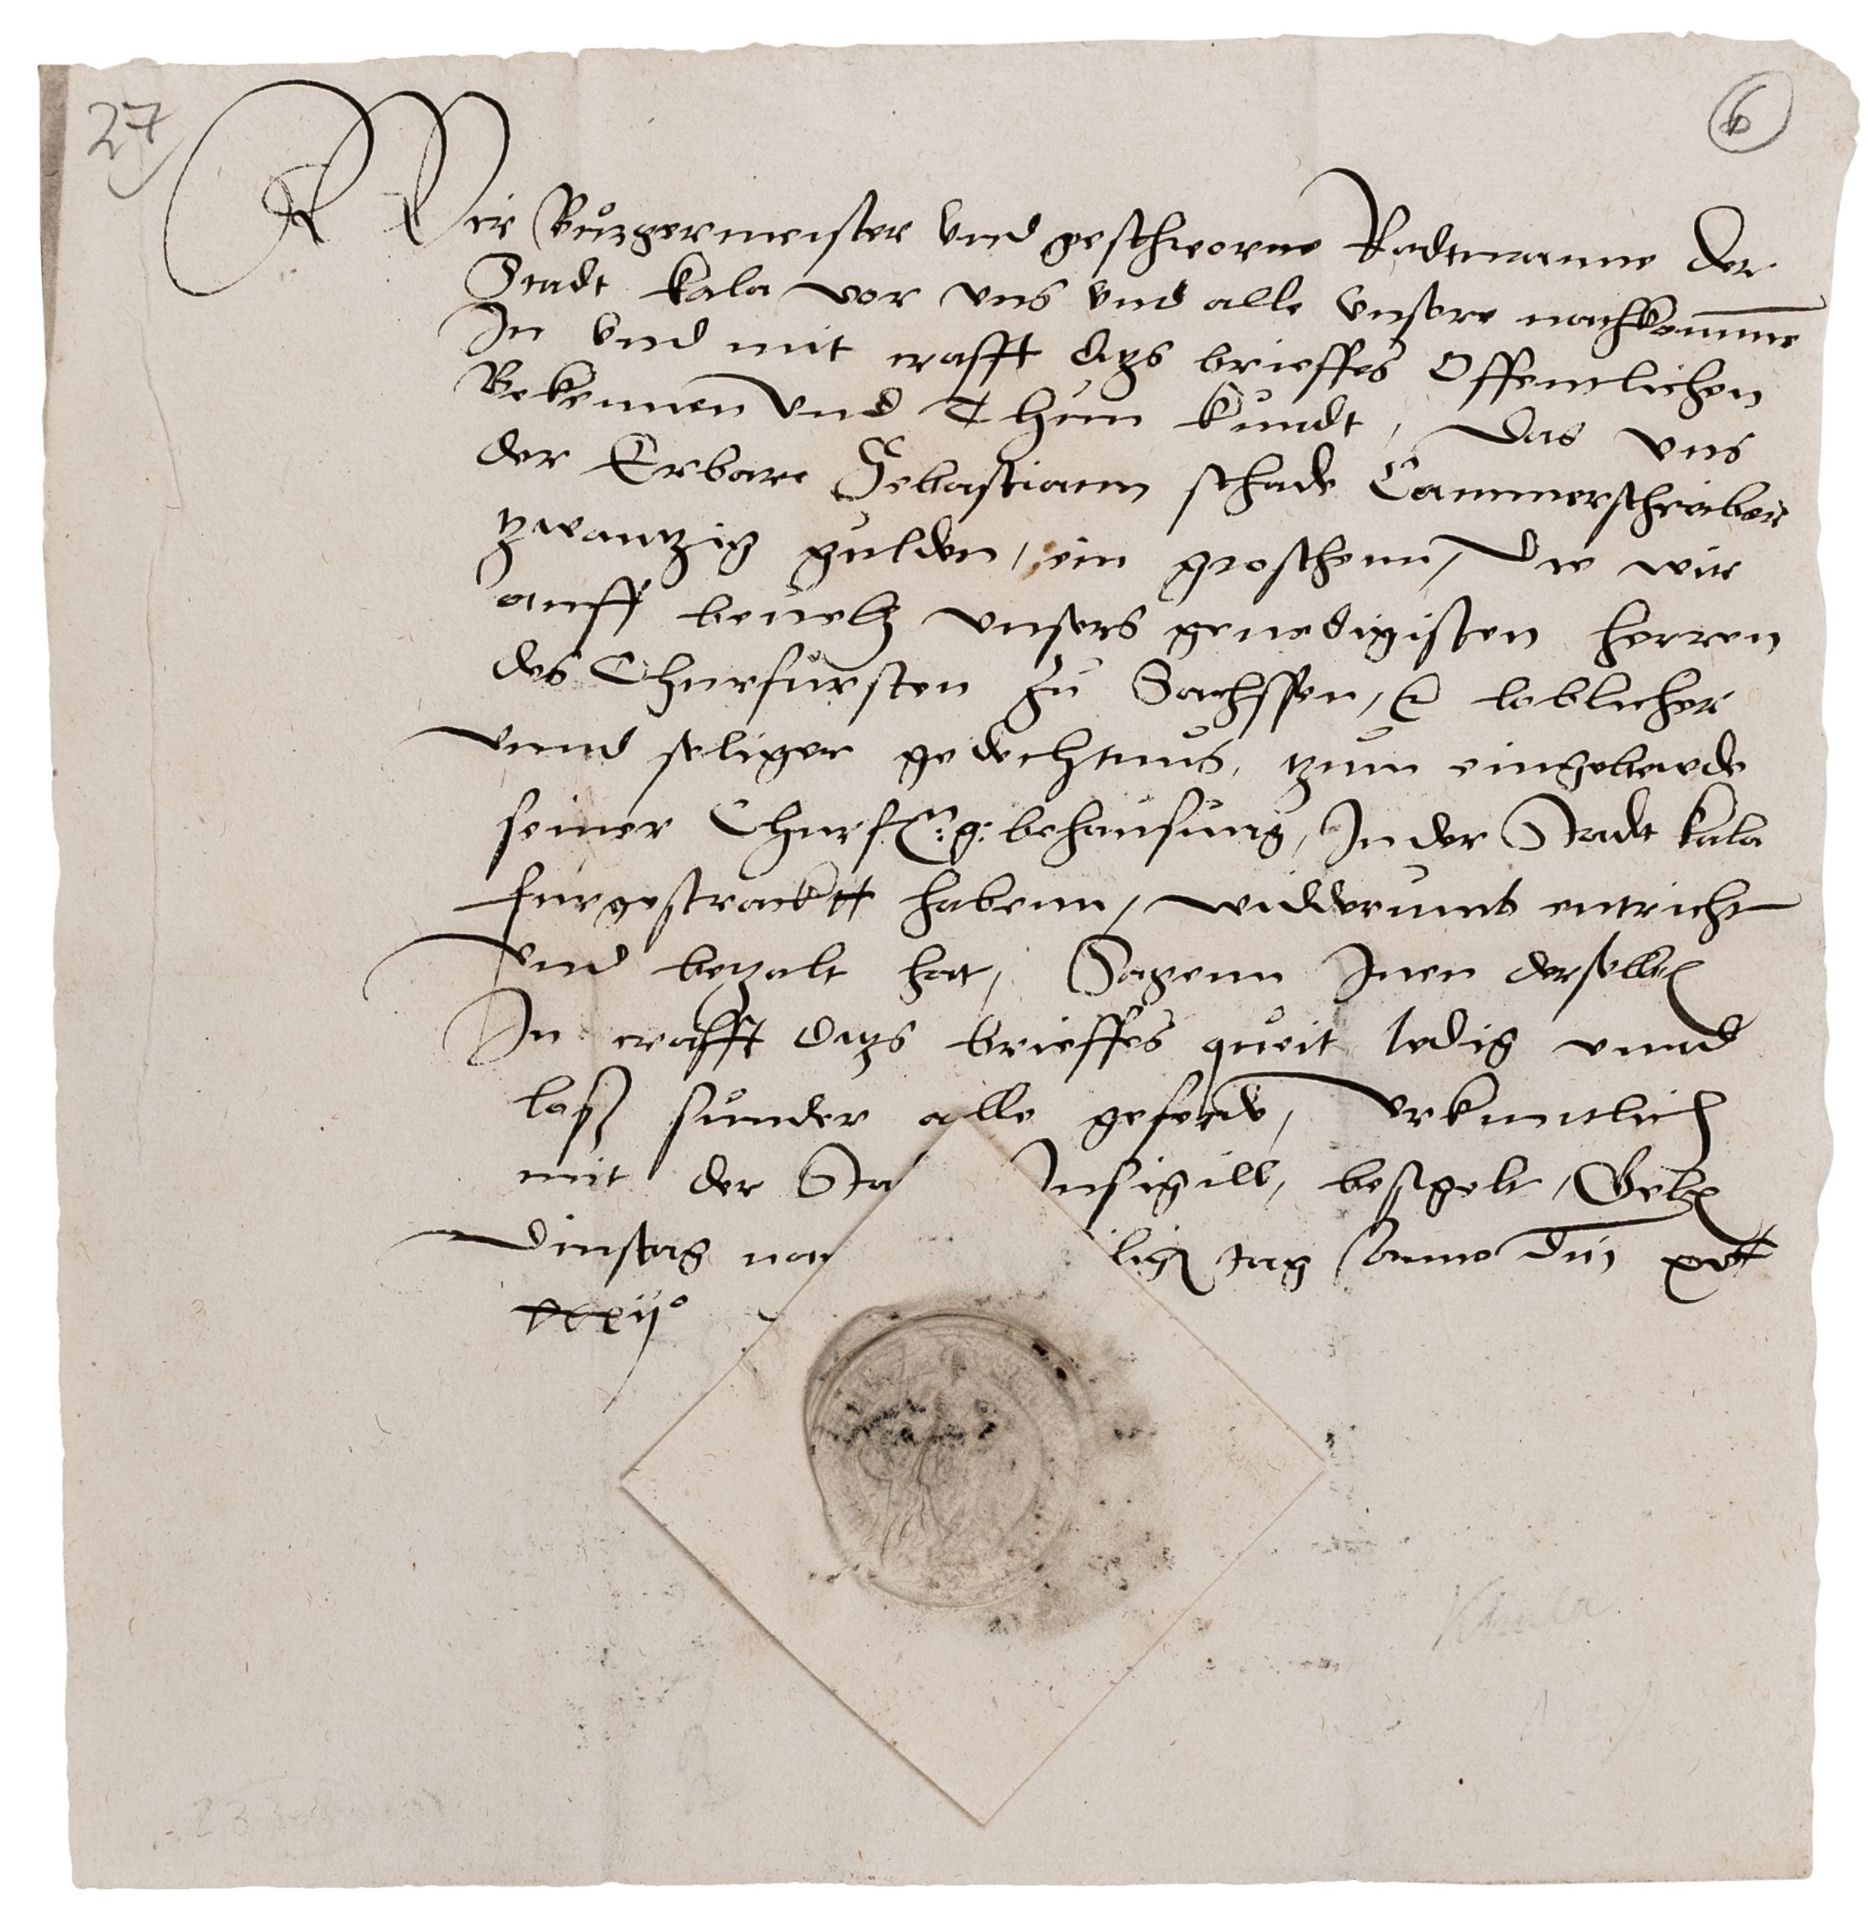 27
6
Wir Burgermeister vnd geschworne Radtmanne der
Stadt kala vor vns vnd alle vnsere nachkomme
In vnd mit crafft ditzs brieffes Offentlichen
Bekennen vnd Thun kundt, Das vns
der Erbare Sebastiann schade Cammerschreiber
tzwantzig gulden, ein groschenn, die wir
auff beuelh vnsers genedigisten herren
des Churfursten zu Sachssen, loblicher
vnnd seliger gedechtnus, tzum eingebewde
seiner Churf. g. behausung, In der Stadt kala
furgestrackt habenn, widderumb entricht
vnd betzalt hat, Sagenn Inen derselben
In crafft ditzs brieffes queit ledig vnnd
loß sunder alle geferde, vrkuntlich
mit der Sta Insigill, besigelt, Gebn
Dinstag nac lichn tag Anno dni xvc
xxvij°
Kahla